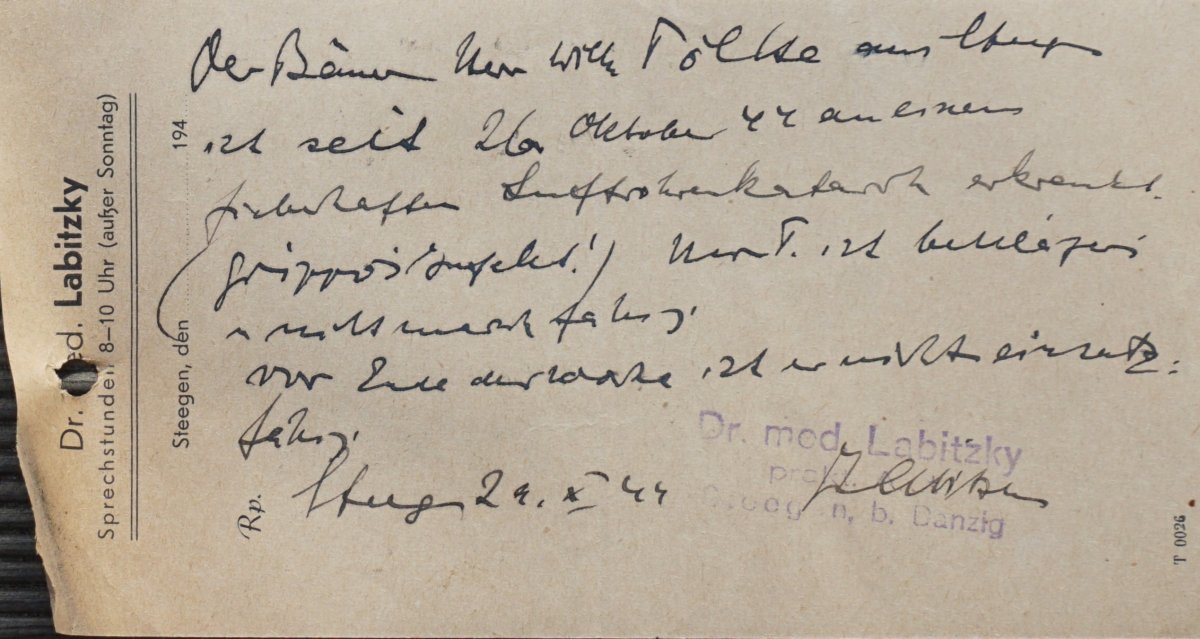 Dr. med. Labitzky
Sprechstunden 8–10 Uhr (außer Sonntag)
Steegen, den 194
Rp.
Der Herr Willi Tölke aus
ist seit 26. Oktober 44 an einem
fieberhaften Luftröhrenkatarrh erkrankt.
(grippöser Infekt!) Herr T. ist bettlägerig
u nicht marschfähig.
vor Ende der Woche ist er nicht einsatz-
fähig.
Steegen 29. X 44
Dr. med. Labitzky
prakt.
Steegen, b. Danzig
T 0026